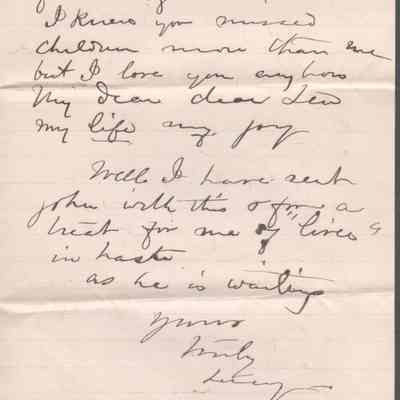 I knew you missed
children more than me
but I love you anyhow
My dear dear Lew
my life my joy
Well I have sent
John with this & for a
treat for me of "lives"
in haste
as he is waiting
Yours
truly